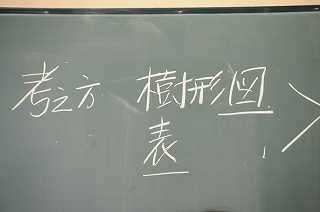 考え方 樹形図
表